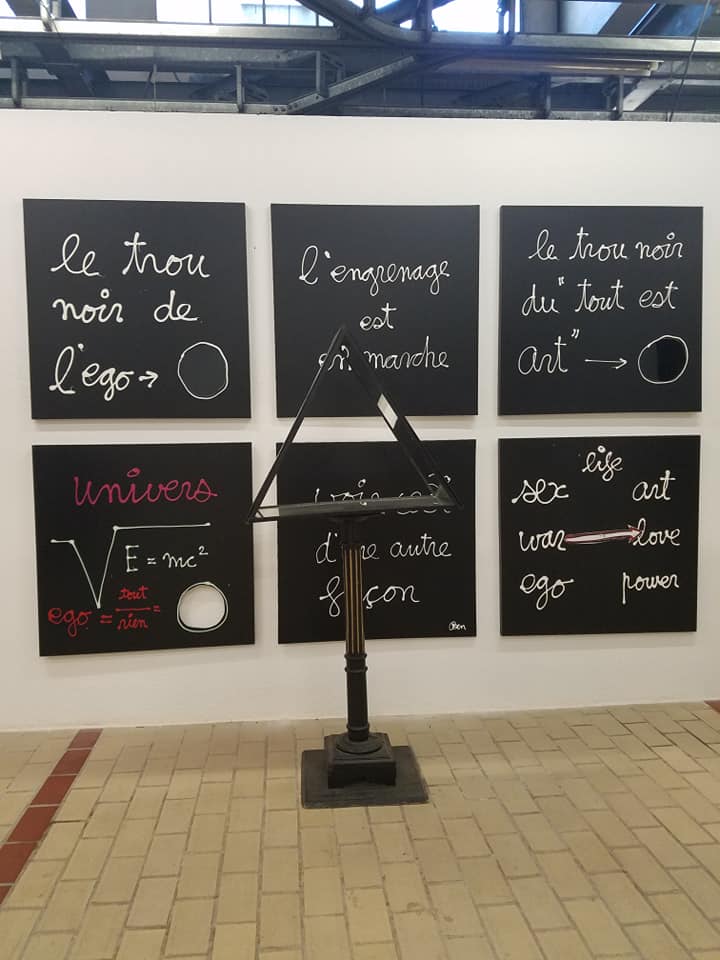 le trou
noir de
l'ego →
l'engrenage
est
en marche
le trou noir
du "tout est
art" →
univers
√ E = mc²
ego = tout/rien =
d'une autre
façon
Ben
life
sex art
war → love
ego power